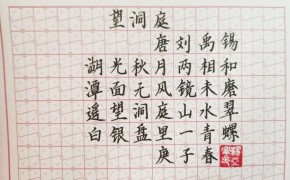 望洞庭
唐刘禹锡
湖光秋月两相和
潭面无风镜未磨
遥望洞庭山水翠
白银盘里一青螺
庚子春